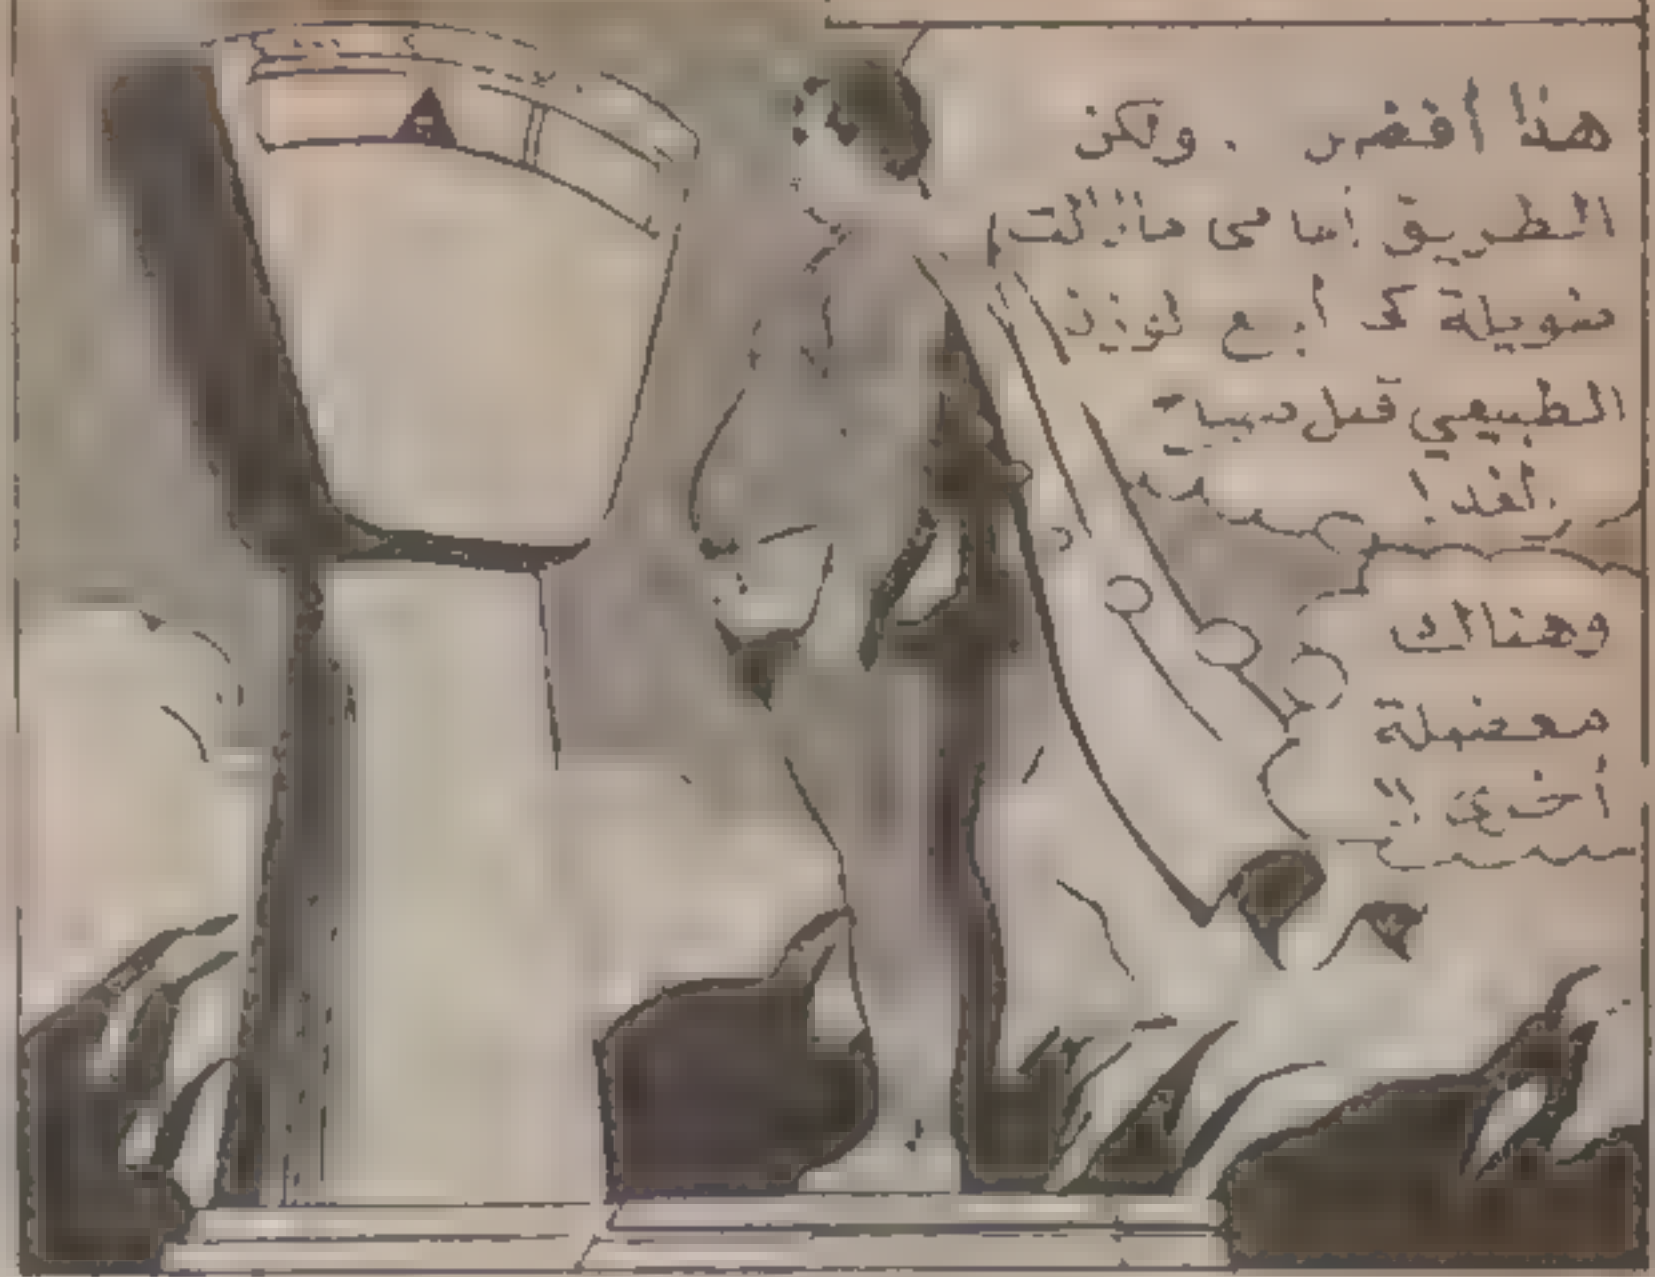 هذا أفضل . ولكن
الطريق أمامي مازالت
طويلة كي أبلغ لوزن
الطبيعي قبل صباح
الغد !
وهناك
معضلة
أخرى !!